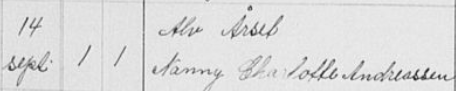 14 Alv Årseb
sept. 1 1 Nanny Charlotte Andreassen